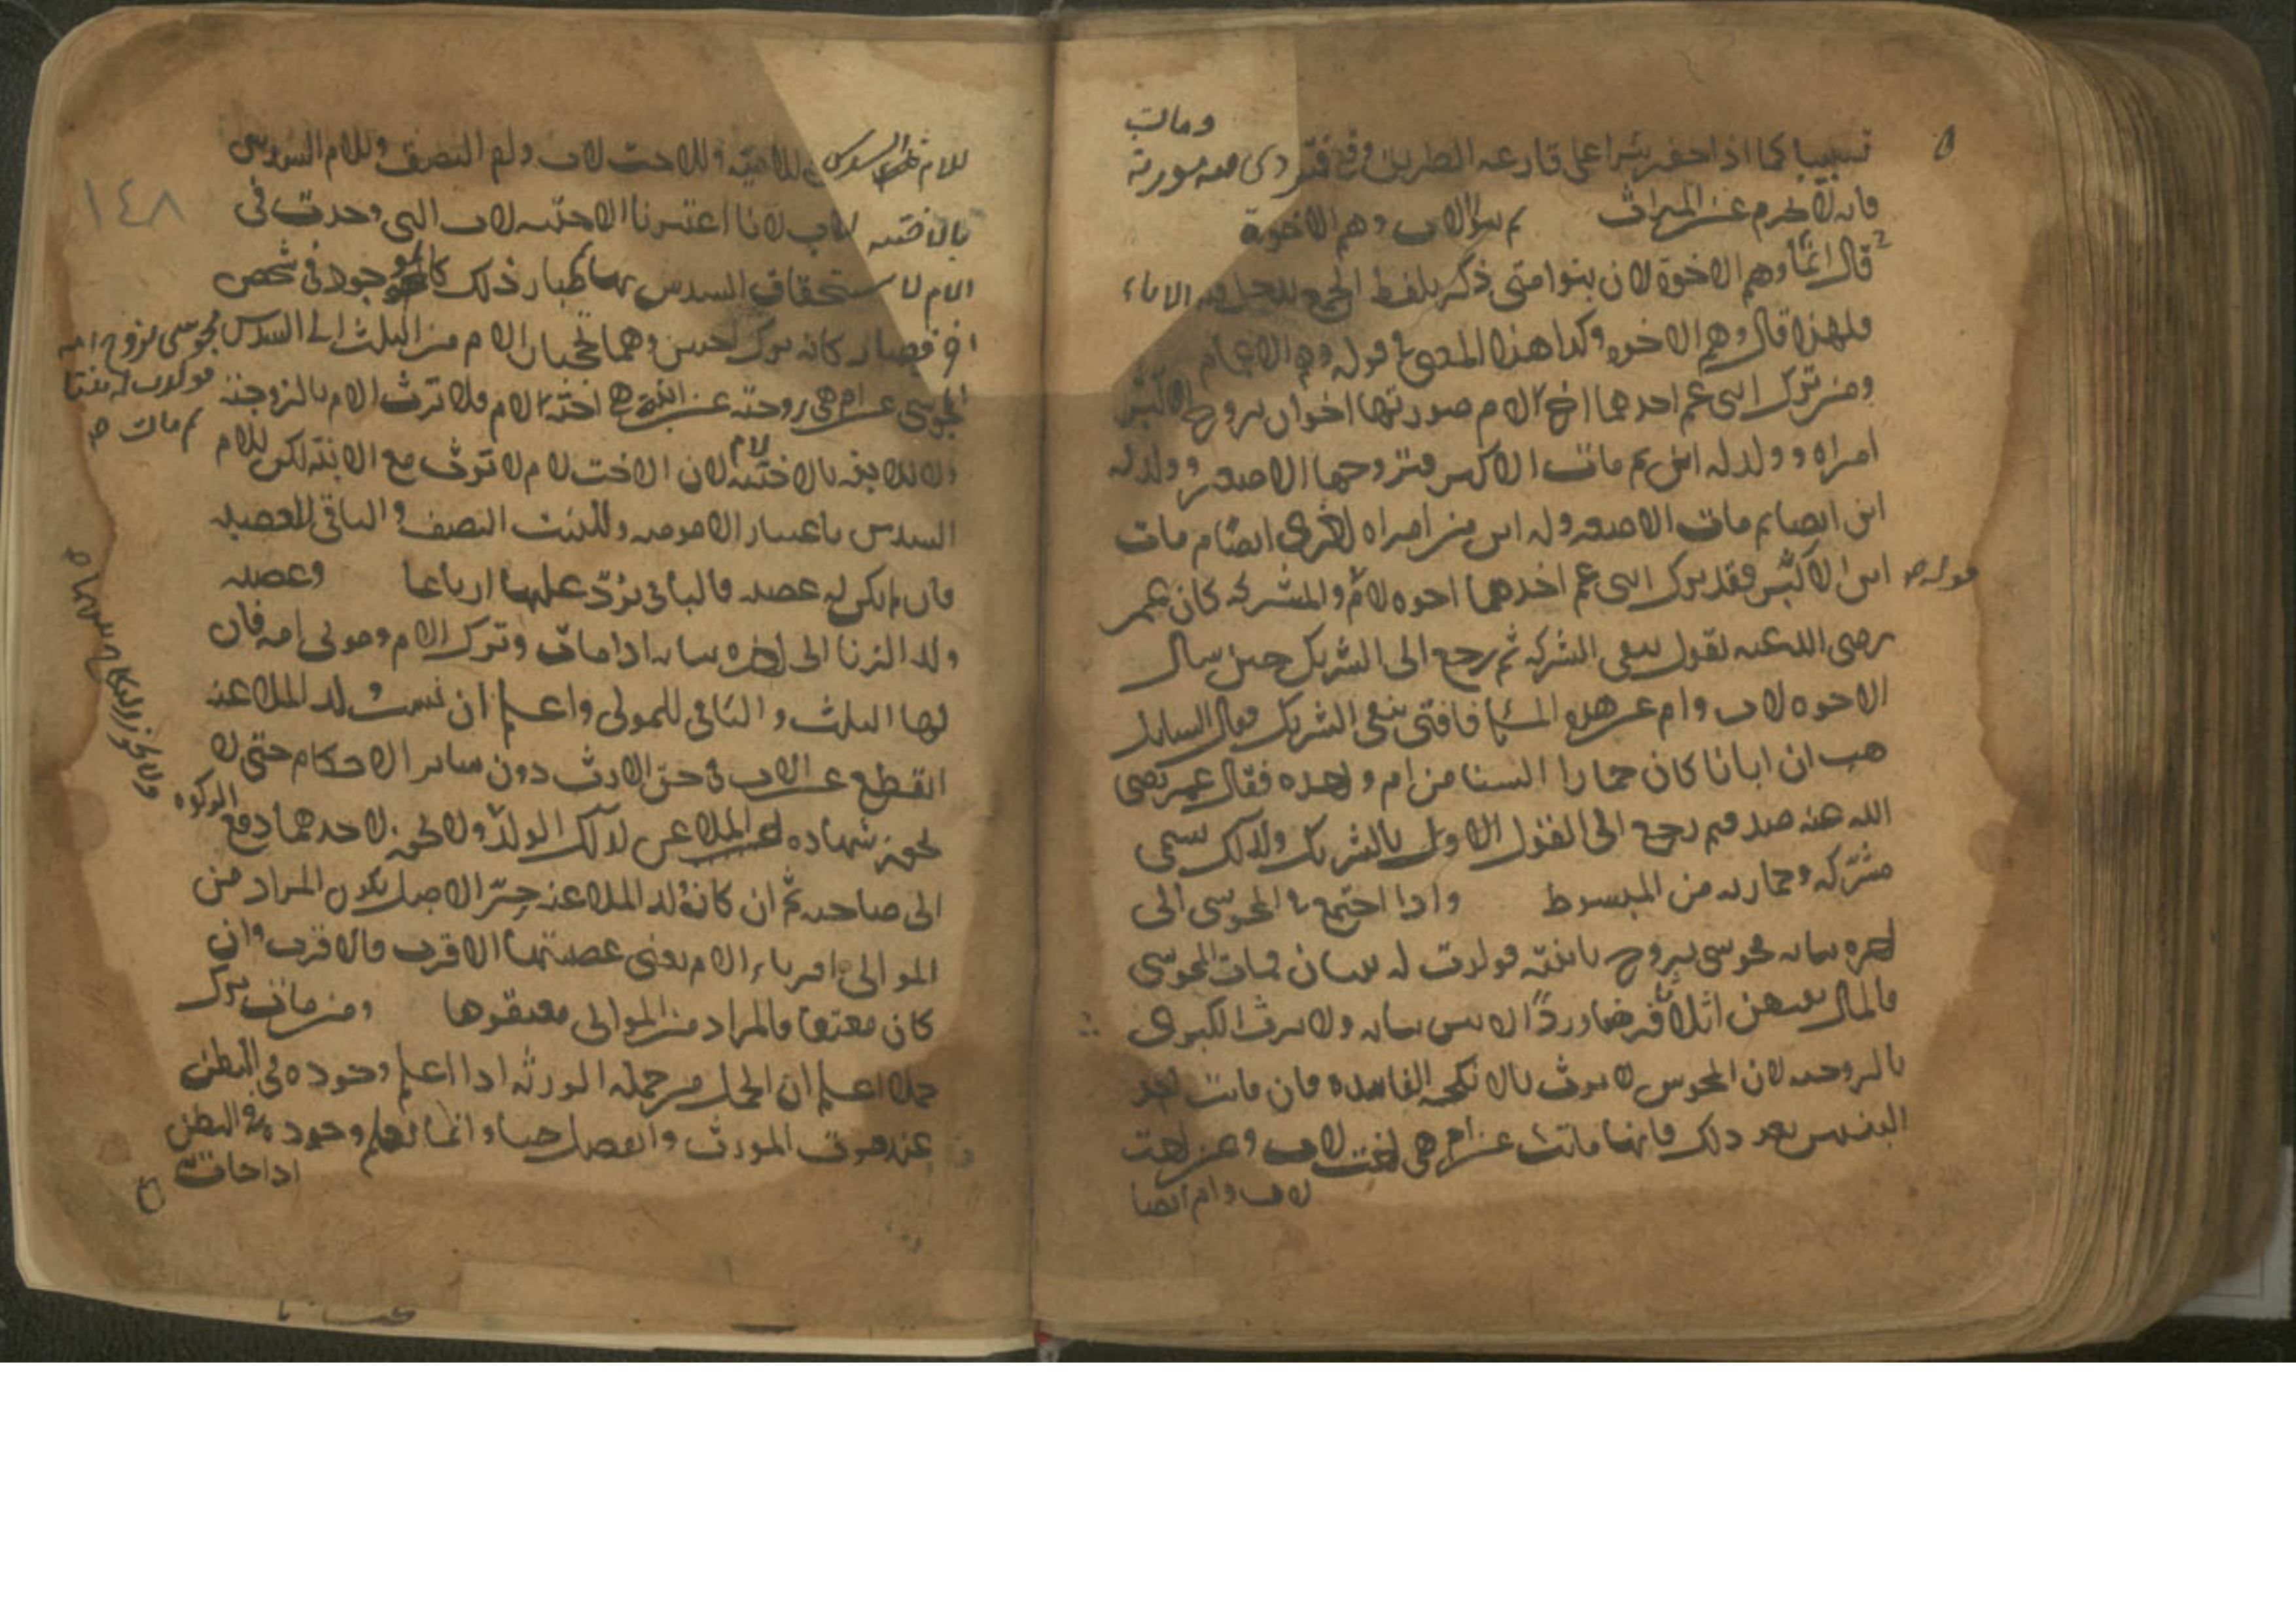 تسبيبا كما اذا حفر بئرا على قارعه الطريق فوقع فيه
ومات
مورثه
فانه لا يحرم عن الميراث ثم بنو الاب وهم الاخوة
قال انما وهم الاخوة لان بنوا متى ذكر بلفظ الجمع
فلهذا قال وهم الاخوه وكذا هذا المعنى في قوله وهم الاعمام
ومن ترك ابنى عم احدهما اخ لام صورتها اخوان تزوج الاكبر
امراه وولد له ابن ثم مات الاكبر فتزوجها الاصغر وولد له
ابن ايضا ثم مات الاصغر وله ابن من امراه اخرى ايضا ثم مات
ابن الاكبر فقد ترك ابنى عم احدهما اخوه لام والمشركه كان عمر
قوله
رضى الله عنه يقول بنفى الشركه ثم رجع الى التشريك حين سال
الاخوه لاب وام عن هذه المسئلة فافتى بنفى التشريك فقال السايل
هب ان ابانا كان حمارا السنا من ام واحده فقال عمر رضى
الله عنه صدق ثم رجع الى القول الاول بالتشريك ولذلك سمى
مشتركه وحماريه من المبسوط واذا اجتمع في المجوسى الى
اخره بيانه مجوسى تزوج بابنته فولدت له بنتان فمات المجوسى
فالمال بينهن اثلاثا فرضا وردا لانهن بناته ولا ترث الكبرى
بالزوجيه لان المجوس لا يرث بالانكحه الفاسده فان ماتت احد
البنتين بعد ذلك فانها ماتت عن ام هى اخت لاب وعن اخت
لاب وام ايضا
١٤٨
للام السدس وللاخت لاب وام النصف وللام السدس
بالاختيه لاب لانا اعتبرنا الاختيه لاب التى وجدت فى
الام لاستحقاق السدس بها باعتبار ذلك كالموجود فى شخص
اخر فصار كانه ترك اختين وهما تحجبان الام من الثلث الى السدس
مجوسى تزوج امه
فولدت له بنتا
ثم مات
المجوسى عن ام هى زوجته عن ابنة هى اخته لام فلا ترث الام بالزوجية
ولا للابنه بالاختيه لام لان الاخت لام لا ترث مع الابنه لكن للام
السدس باعتبار الامومه وللبنت النصف والباقى للعصبه
فان لم يكن له عصبه فالباقى يرد عليها ارباعا وعصبه
ولد الزنا الى اخره بيانه اذا مات وترك الام ومولى امه فان
لها الثلث والباقى للمولى واعلم ان نسب ولد الملاعنه
انقطع عن الاب فى حق الارث دون ساير الاحكام حتى لا
تجوز شهاده احد الملاعن لذلك الولد ولا يجوز لاحدهما دفع
الزكوه
الى صاحبه ثم ان كان ولد الملاعنه حر الاصل يكون المراد من
الموالى اقرباء الام يعنى عصبتها الاقرب فالاقرب وان
كان معتقا فالمراد من الموالى معتقوها ومن مات وترك
حملا اعلم ان الحمل من جمله الورثه اذا علم وجوده فى البطن
عند موت المورث وانفصل حيا وانما يعلم وجوده فى البطن
اذا جات